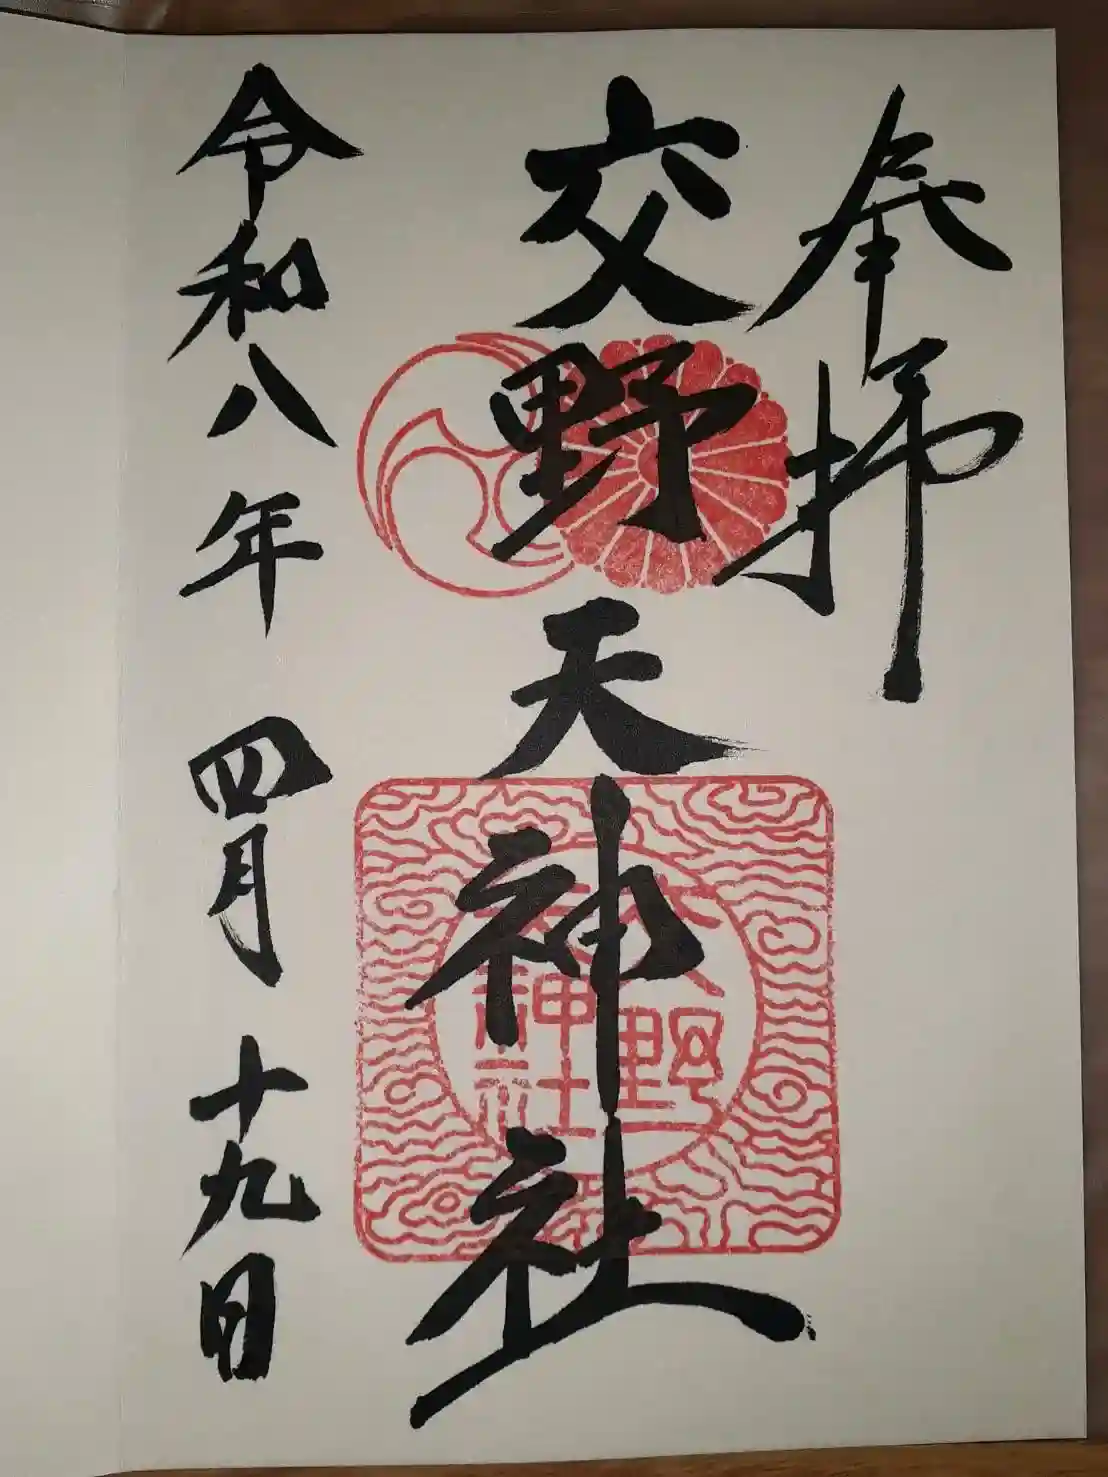 奉拝
交野天神社
交野
天神社
令和八年 四月 十九日